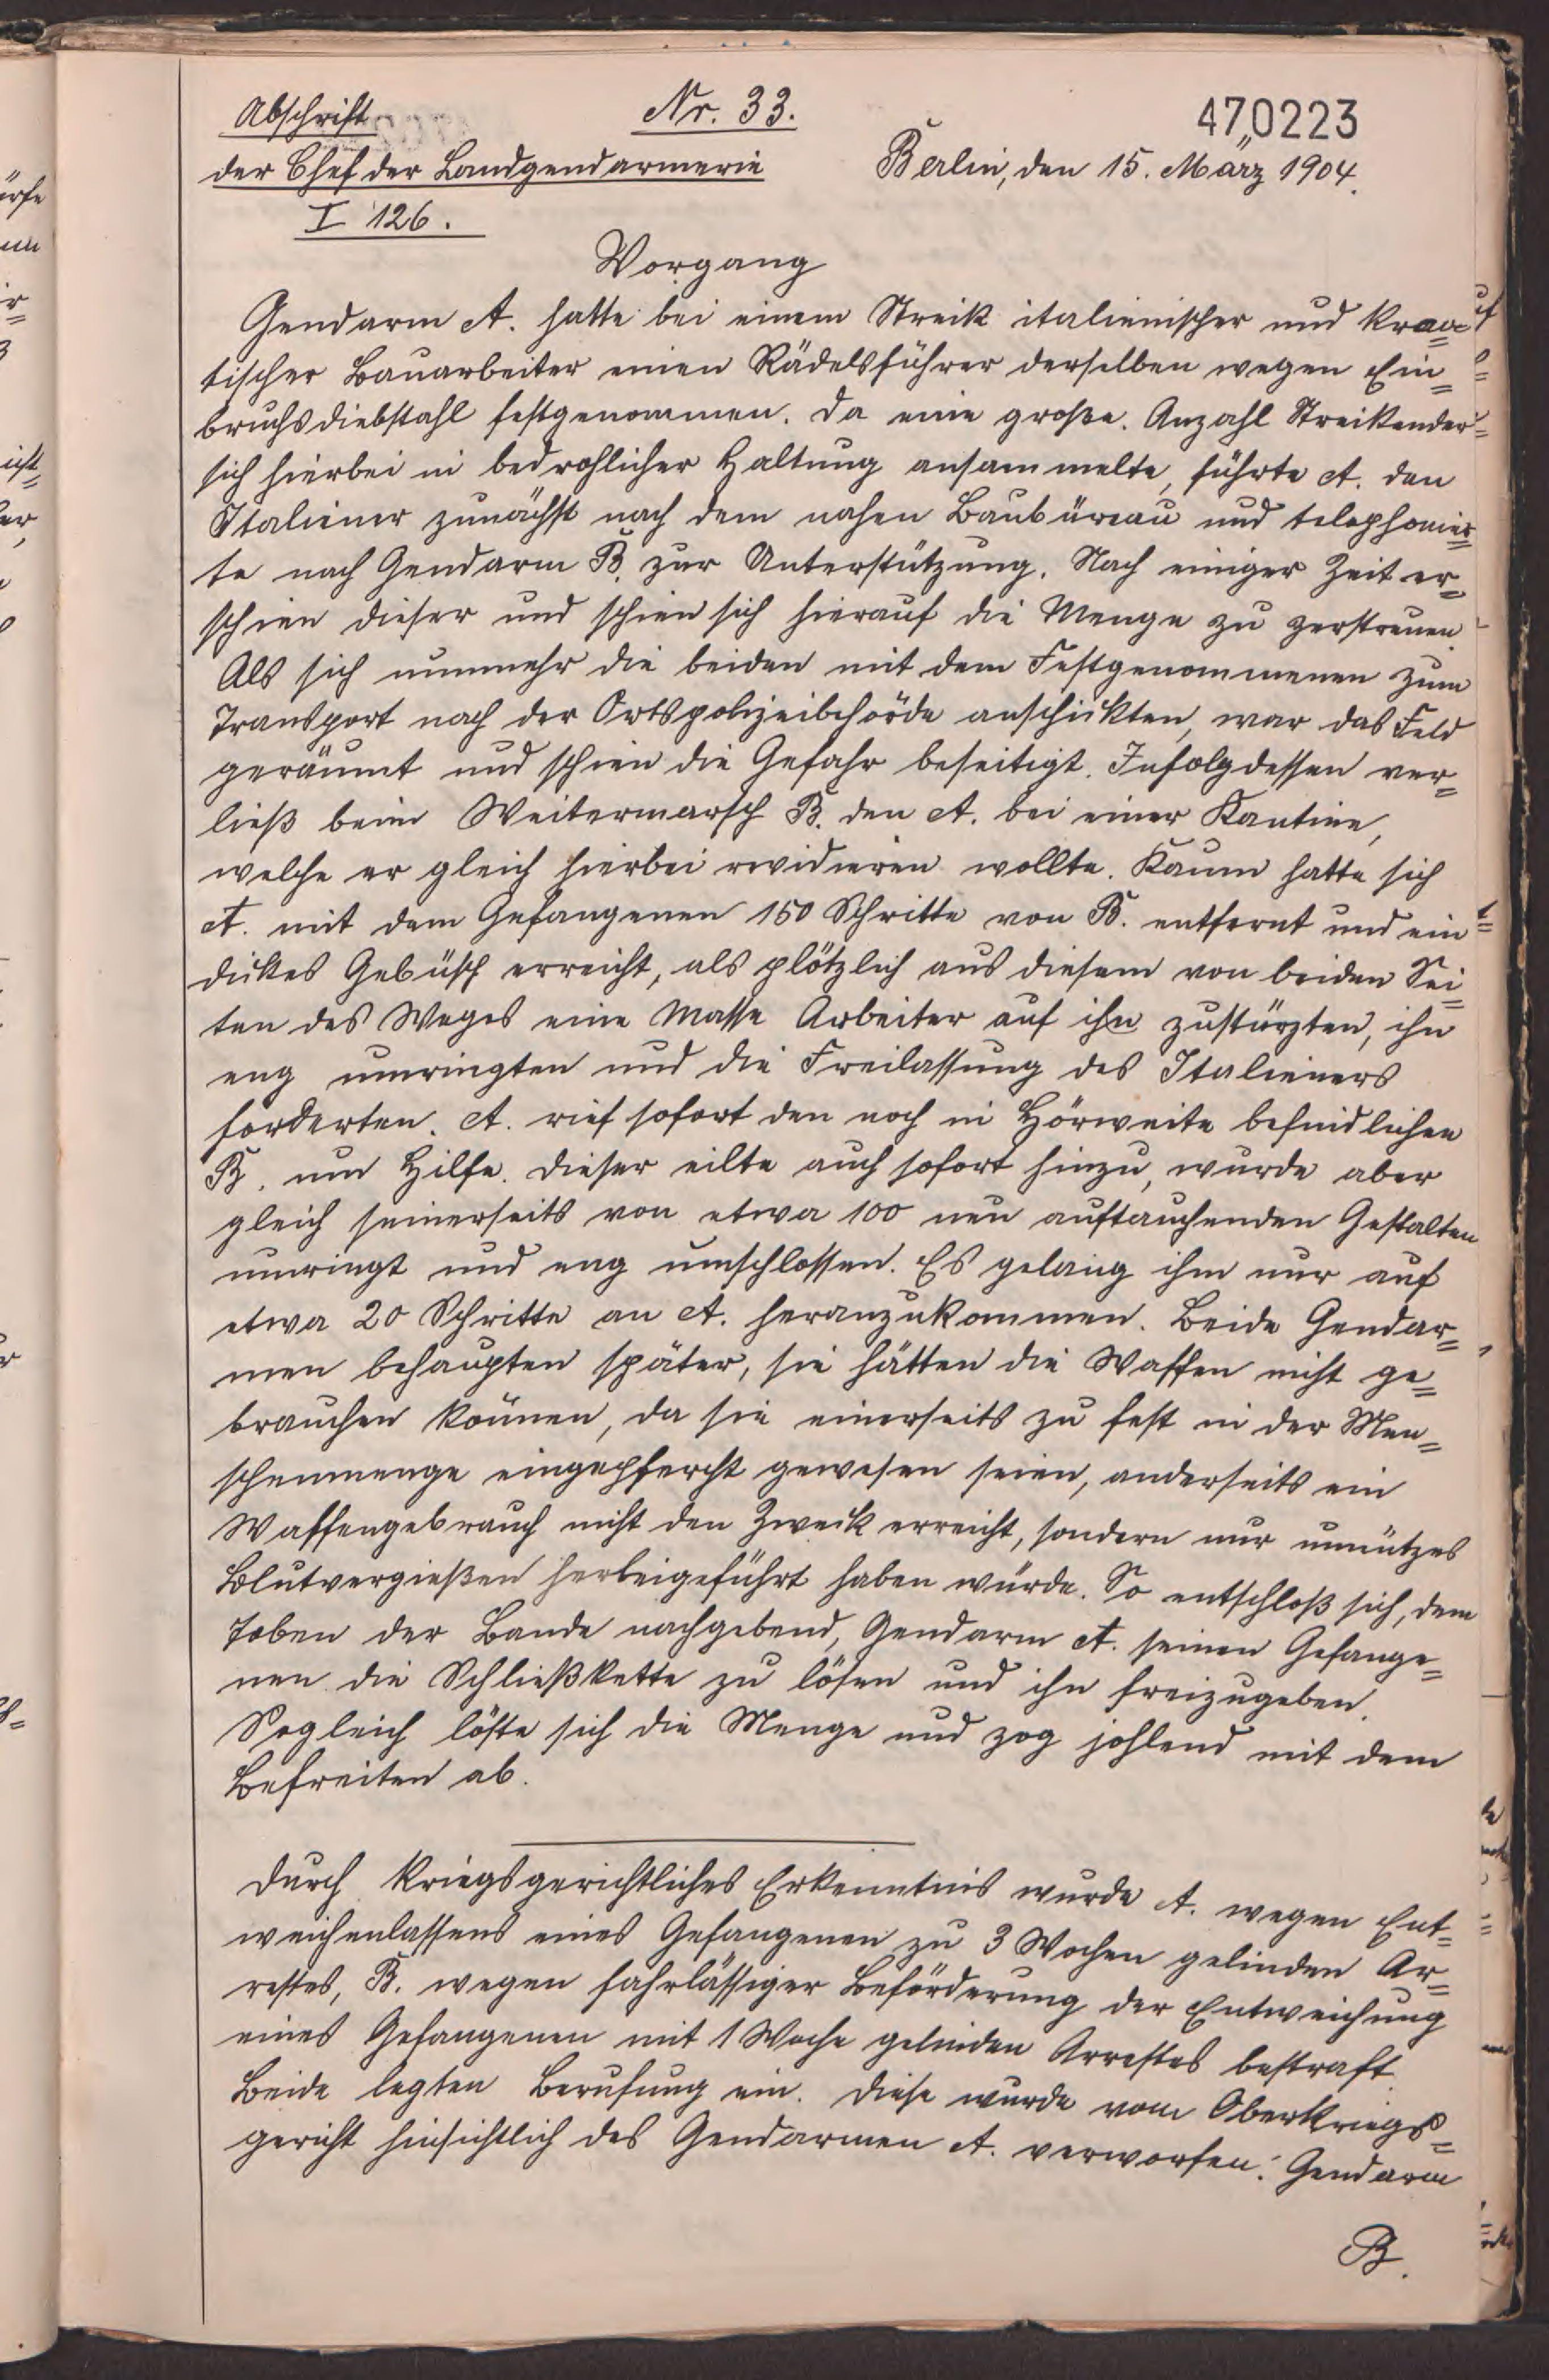 Abschrift
Nr. 33.
470223
der Chef der Landgendarmerie
Berlin, den 15. März 1904.
I 126.
Vorgang
Gendarm A. hatte bei einem Streik italienischer und kroa=
tischer Bauarbeiter einen Rädelsführer derselben wegen Ein=
bruchsdiebstahl festgenommen. Da eine große Anzahl Streikender
sich hierbei in bedrohlicher Haltung ansammelte, führte A. den
Italiener zunächst nach dem nahen Baubüreau und telephonier=
te nach Gendarm B. zur Unterstützung. Nach einiger Zeit er=
schien dieser und schien sich hierauf die Menge zu zerstreuen.
Als sich nunmehr die beiden mit dem Festgenommenen zum
Transport nach der Ortspolizeibehörde anschickten, war das Feld
geräumt und schien die Gefahr beseitigt. Infolgdessen ver=
ließ beim Weitermarsch B. den A. bei einer Kantine,
welche er gleich hierbei revidieren wollte. Kaum hatte sich
A. mit dem Gefangenen 150 Schritte von B. entfernt und ein
dickes Gebüsch erreicht, als plötzlich aus diesem von beiden Sei=
ten des Weges eine Masse Arbeiter auf ihn zustürzten, ihn
eng umringten und die Freilassung des Italieners
forderten. A. rief sofort den noch in Hörweite befindlichen
B. um Hilfe. Dieser eilte auch sofort hinzu, wurde aber
gleich seinerseits von etwa 100 neu auftauchenden Gestalten
umringt und eng umschlossen. Es gelang ihm nur auf
etwa 20 Schritte an A. heranzukommen. Beide Gendar=
men behaupten später, sie hätten die Waffen nicht ge=
brauchen können, da sie einerseits zu fest in der Men=
schenmenge eingepfercht gewesen seien, anderseits ein
Waffengebrauch nicht den Zweck erreicht, sondern nur unnützes
Blutvergießen herbeigeführt haben würde. So entschloß sich, dem
Toben der Bande nachgebend, Gendarm A. seinen Gefange=
nen die Schließkette zu lösen und ihn freizugeben.
Sogleich löste sich die Menge und zog johlend mit dem
Befreiten ab.
Durch kriegsgerichtliches Erkenntnis wurde A. wegen Ent=
weichenlassens eines Gefangenen zu 3 Wochen gelinden Ar=
restes, B. wegen fahrlässiger Beförderung der Entweichung
eines Gefangenen mit 1 Woche gelinden Arrestes bestraft.
Beide legten Berufung ein. Diese wurde vom Oberkriegs=
gericht hinsichtlich des Gendarmen A. verworfen. Gendarm
B.